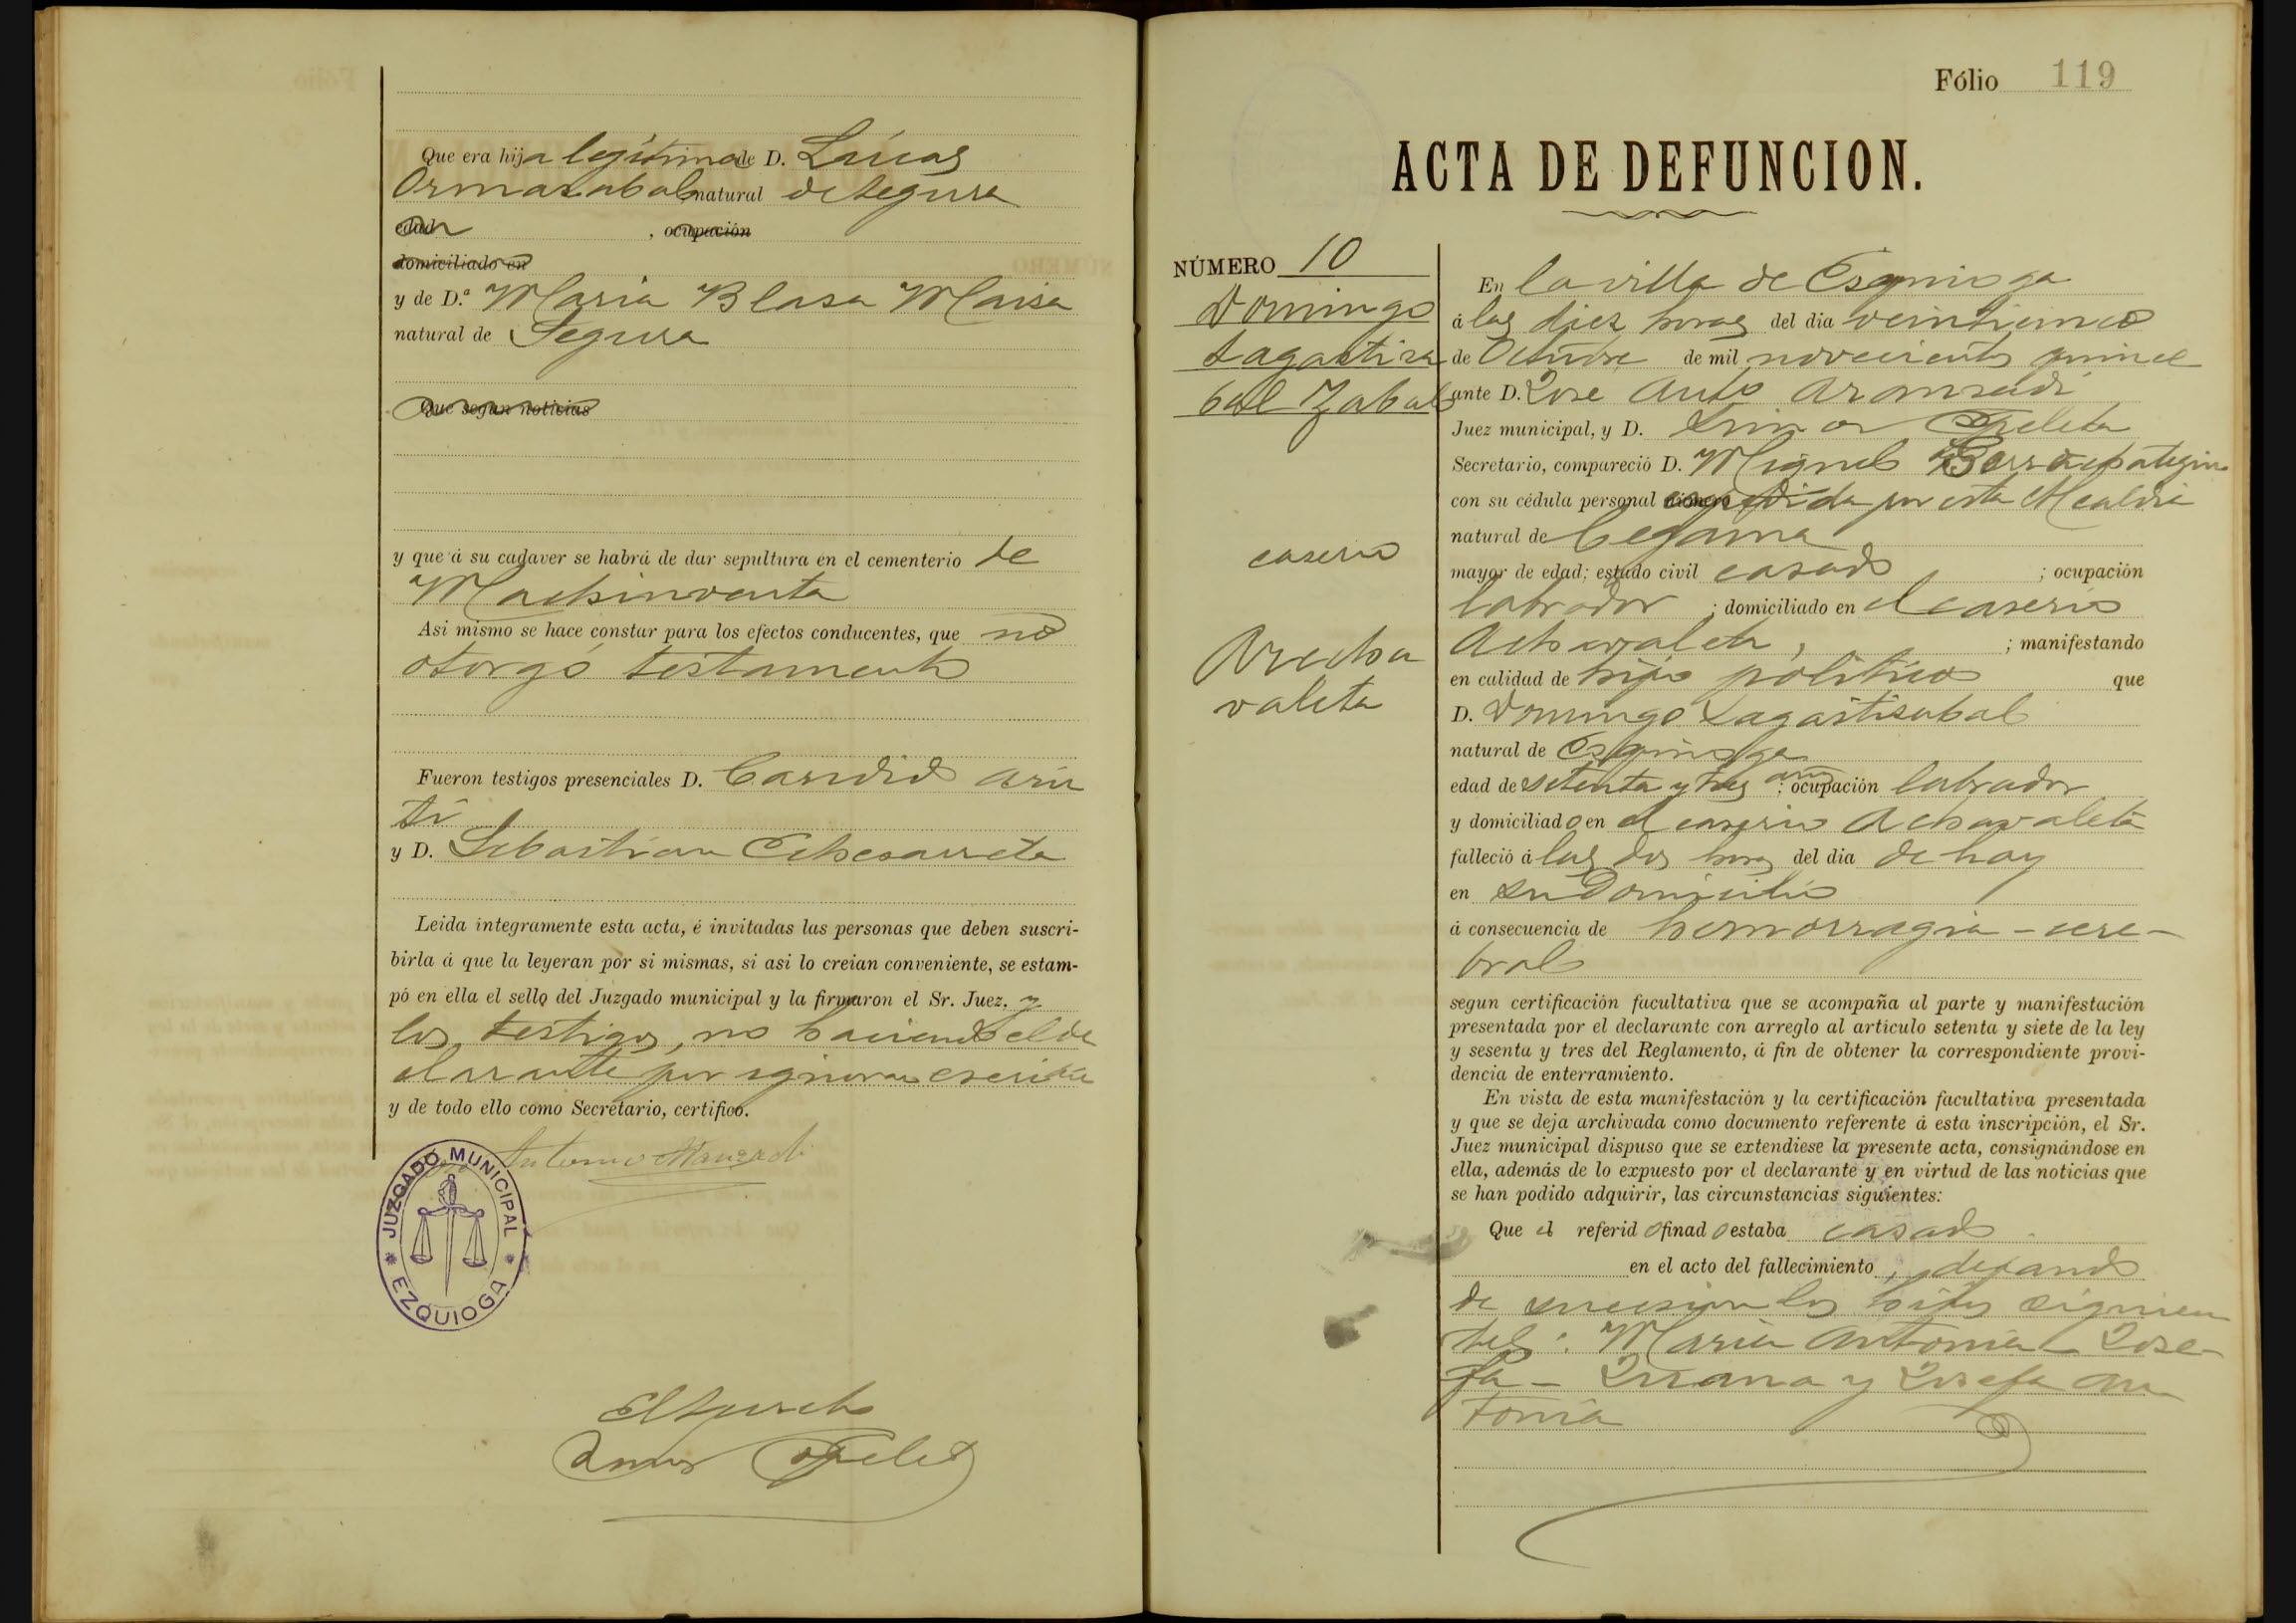 Que era hija legítima de D. Lúcas
Ormazabal natural de Segura
edad , ocupación
domiciliado en
y de D.ª Maria Blasa Maisa
natural de Segura
Que segun noticias
y que á su cadaver se habrá de dar sepultura en el cementerio de
Machinventa
Asi mismo se hace constar para los efectos conducentes, que no
otorgó testamento
Fueron testigos presenciales D. Candido Aru
ti
y D. Sebastian Echezarreta
Leida integramente esta acta, é invitadas las personas que deben suscri-
birla á que la leyeran por si mismas, si asi lo creian conveniente, se estam-
pó en ella el sello del Juzgado municipal y la firmaron el Sr. Juez, y
los testigos, no haciendo el de
clarante por ignorar escribir
y de todo ello como Secretario, certifico.
Antonio Aranzadi
JUZGADO MUNICIPAL
EZQUIOGA
Fólio 119
ACTA DE DEFUNCION.
NÚMERO 10
Domingo
Lagastiza
bal Zabala
caserio
Arecha
valeta
En la villa de Esquioga
á las diez horas del dia veinticinco
de Octubre de mil novecientos quince
ante D. Jose Anto Aranzadi
Juez municipal, y D. Simon Opeleta
Secretario, compareció D. Miguel
con su cédula personal número expedida por esta Alcaldia
natural de Cegama
mayor de edad; estado civil casado ; ocupación
labrador ; domiciliado en el caserio
Achavaleta, ; manifestando
en calidad de hijo politico que
D. Domingo Lagastizabal
natural de Esquioga
edad de setenta y tres años ; ocupación labrador
y domiciliado en el caserio Achavaleta
falleció á las dos horas del dia de hoy
en su domicilio
á consecuencia de hemorragia-cere-
bral
segun certificación facultativa que se acompaña al parte y manifestación
presentada por el declarante con arreglo al artículo setenta y siete de la ley
y sesenta y tres del Reglamento, á fin de obtener la correspondiente provi-
dencia de enterramiento.
En vista de esta manifestación y la certificación facultativa presentada
y que se deja archivada como documento referente á esta inscripción, el Sr.
Juez municipal dispuso que se extendiese la presente acta, consignándose en
ella, además de lo expuesto por el declarante y en virtud de las noticias que
se han podido adquirir, las circunstancias siguientes:
Que el referido finado estaba casado
en el acto del fallecimiento, dejando
de sucesion los hijos siguien
tes: Maria Antonia - Jose-
fa - Juana y Josefa An
tonia